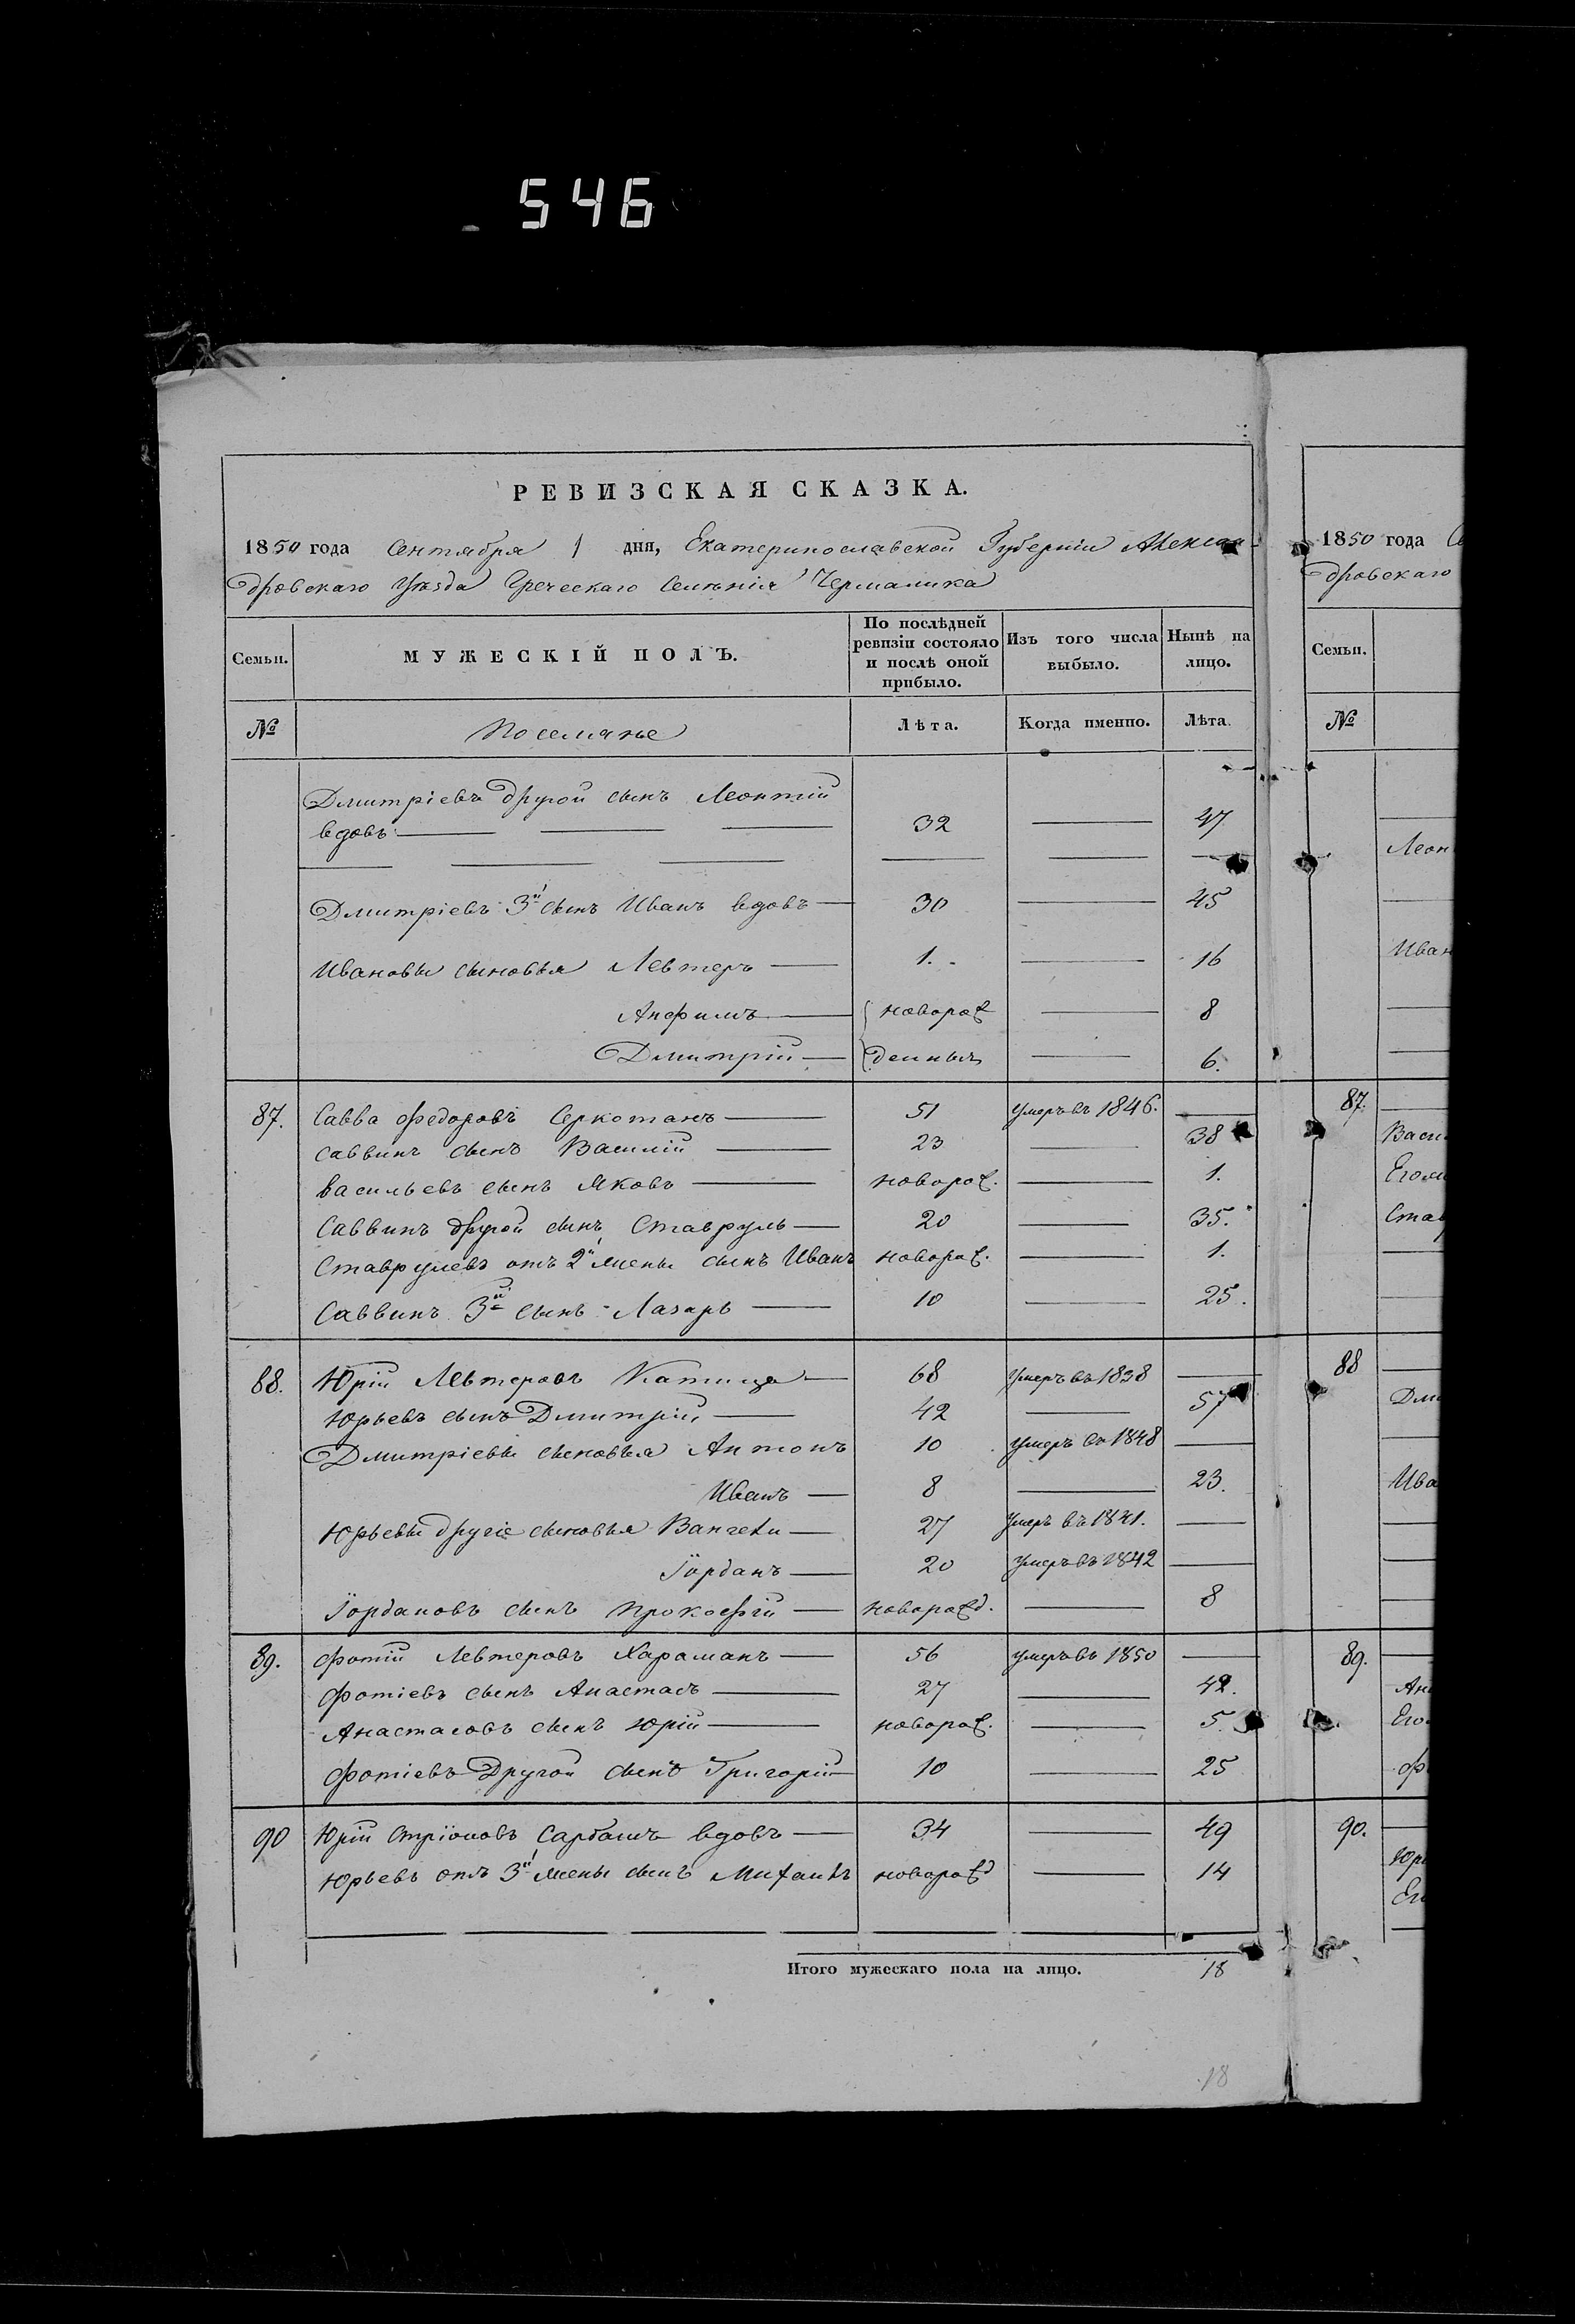 546
РЕВИЗСКАЯ СКАЗКА.
1850 года Сентября 1 дня, Екатеринославской Губерніи Алексан-
дровскаго Уѣзда Греческаго Селенія Чермалика
Семьи.
МУЖЕСКІЙ ПОЛЪ.
По послѣдней ревизіи состояло и послѣ оной прибыло.
Изъ того числа выбыло.
Нынѣ на лицо.
№
Поселяне
Лѣта.
Когда именно.
Лѣта.
Дмитріевъ другой сынъ Леонтій
вдовъ 32 47
Дмитріевъ 3й сынъ Иванъ вдовъ 30 45
Ивановы сыновья Левтеръ 1. 16
Анфимъ новорож 8
Дмитрій денныъ 6.
87. Савва Федоровъ Серкотанъ 51 умеръ въ 1846.
Саввинъ сынъ Василій 23 38
Васильевъ сынъ Яковъ новорож. 1.
Саввинъ другой сынъ Ставруль 20 35.
Ставрулевъ отъ 2й жены сынъ Иванъ новорож. 1.
Саввинъ 3й сынъ Лазарь 10 25.
88. Юрій Левтеровъ Катица 68 умеръ въ 1838
Юрьевъ сынъ Дмитрій 42 57
Дмитріевы сыновья Антонъ 10 умеръ въ 1848
Иванъ 8 23.
Юрьевы другіе сыновья Вангели 27 умеръ въ 1841.
Іорданъ 20 умеръ въ 1842
Іордановъ сынъ Прокофій новорожд. 8
89. Фотій Левтеровъ Хараманъ 56 умеръ въ 1850
Фотіевъ сынъ Анастасъ 27 42.
Анастасовъ сынъ Юрій новорож. 5.
Фотіевъ Другой сынъ Григорій 10 25
90 Юрій Стріоновъ Сарбашъ вдовъ 34 49
Юрьевъ отъ 3й жены сынъ Михаилъ новорожд 14
Итого мужескаго пола на лицо. 18
18
1850 года
дровскаго
Семьи.
№
Леон
Иван
87.
Васи
Егож
Став
88
Дми
Ива
89.
Ан
Его
Ф
90.
Юрь
Ег